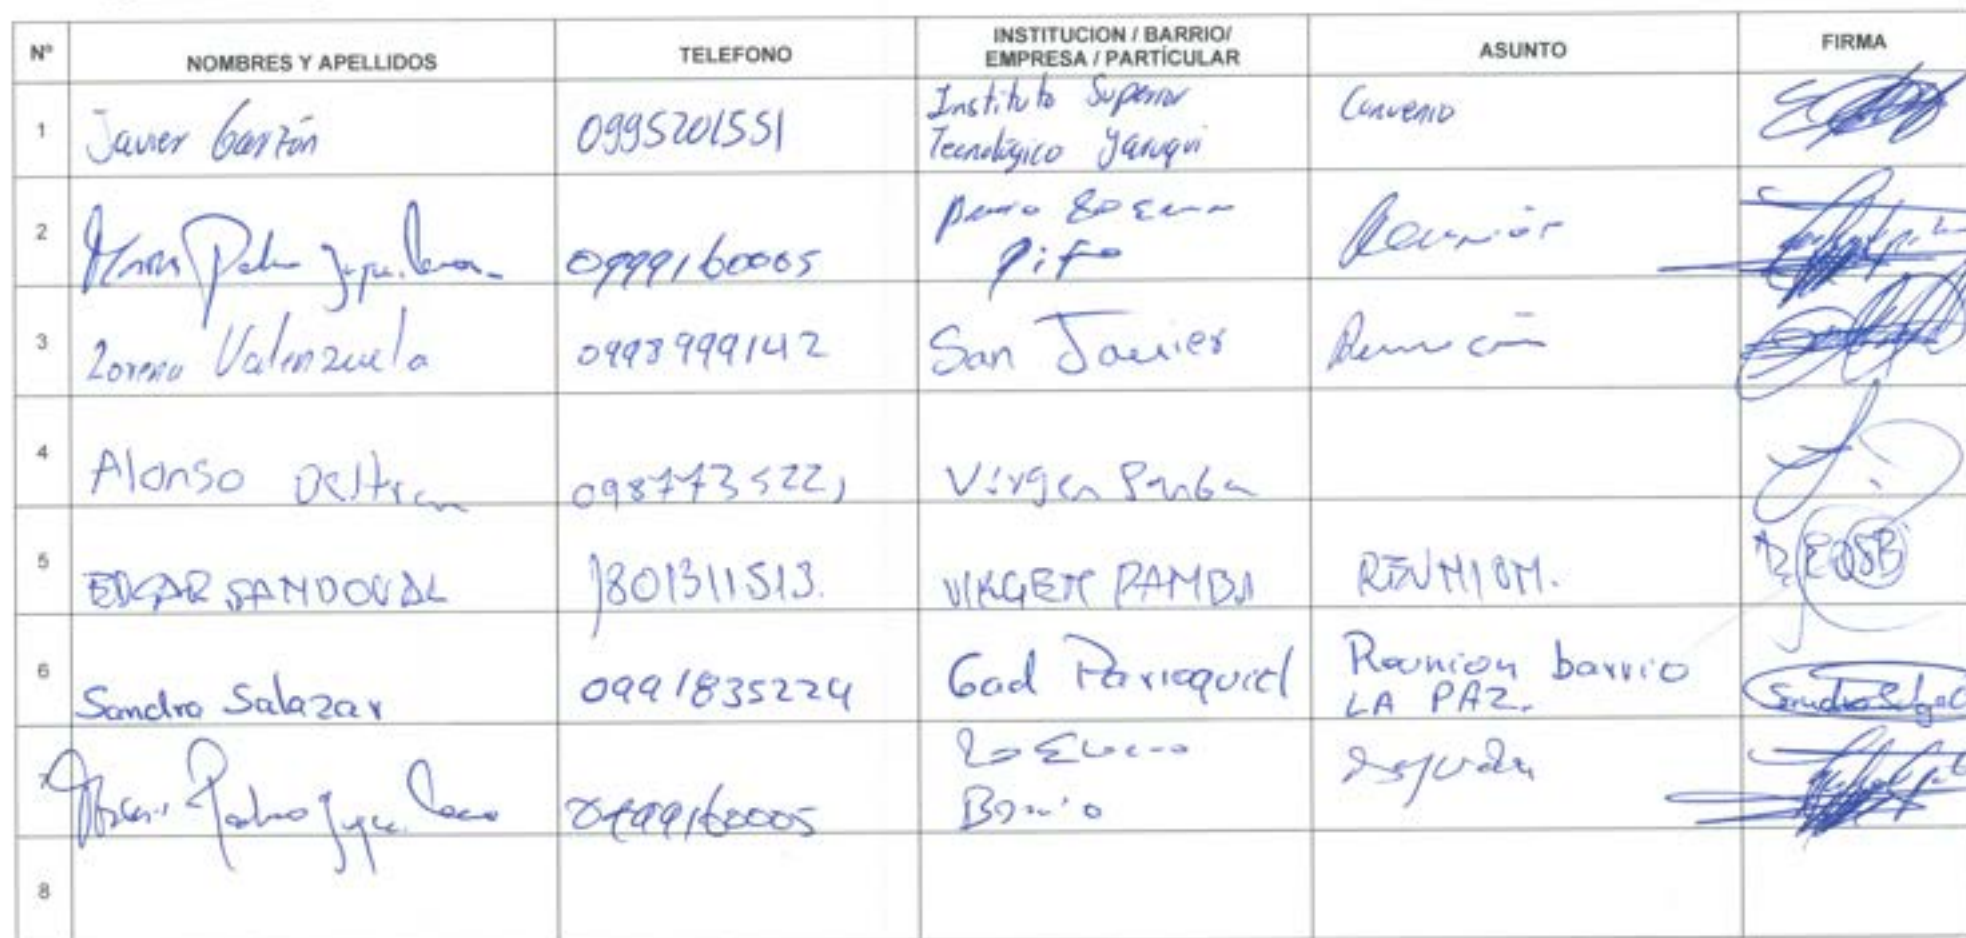 Nº NOMBRES Y APELLIDOS TELEFONO INSTITUCION / BARRIO/ EMPRESA / PARTÍCULAR ASUNTO FIRMA
1 Javier Garzón 0995201551 Instituto Superior Convenio
Tecnológico Yaruqui
2 Pedro 0999160005 Barrio
Pifo Reunión
3 Lorena Valenzuela 0998999142 San Javier Reunión
4 Alonso Beltran 098773522 Virgen Pamba
5 EDGAR SANDOVAL 801311513. VIRGEN PAMBA REUNION.
6 Sandra Salazar 0991835224 Gad Parroquial Reunion barrio
LA PAZ.
7 Pedro 0999160005
Barrio
8